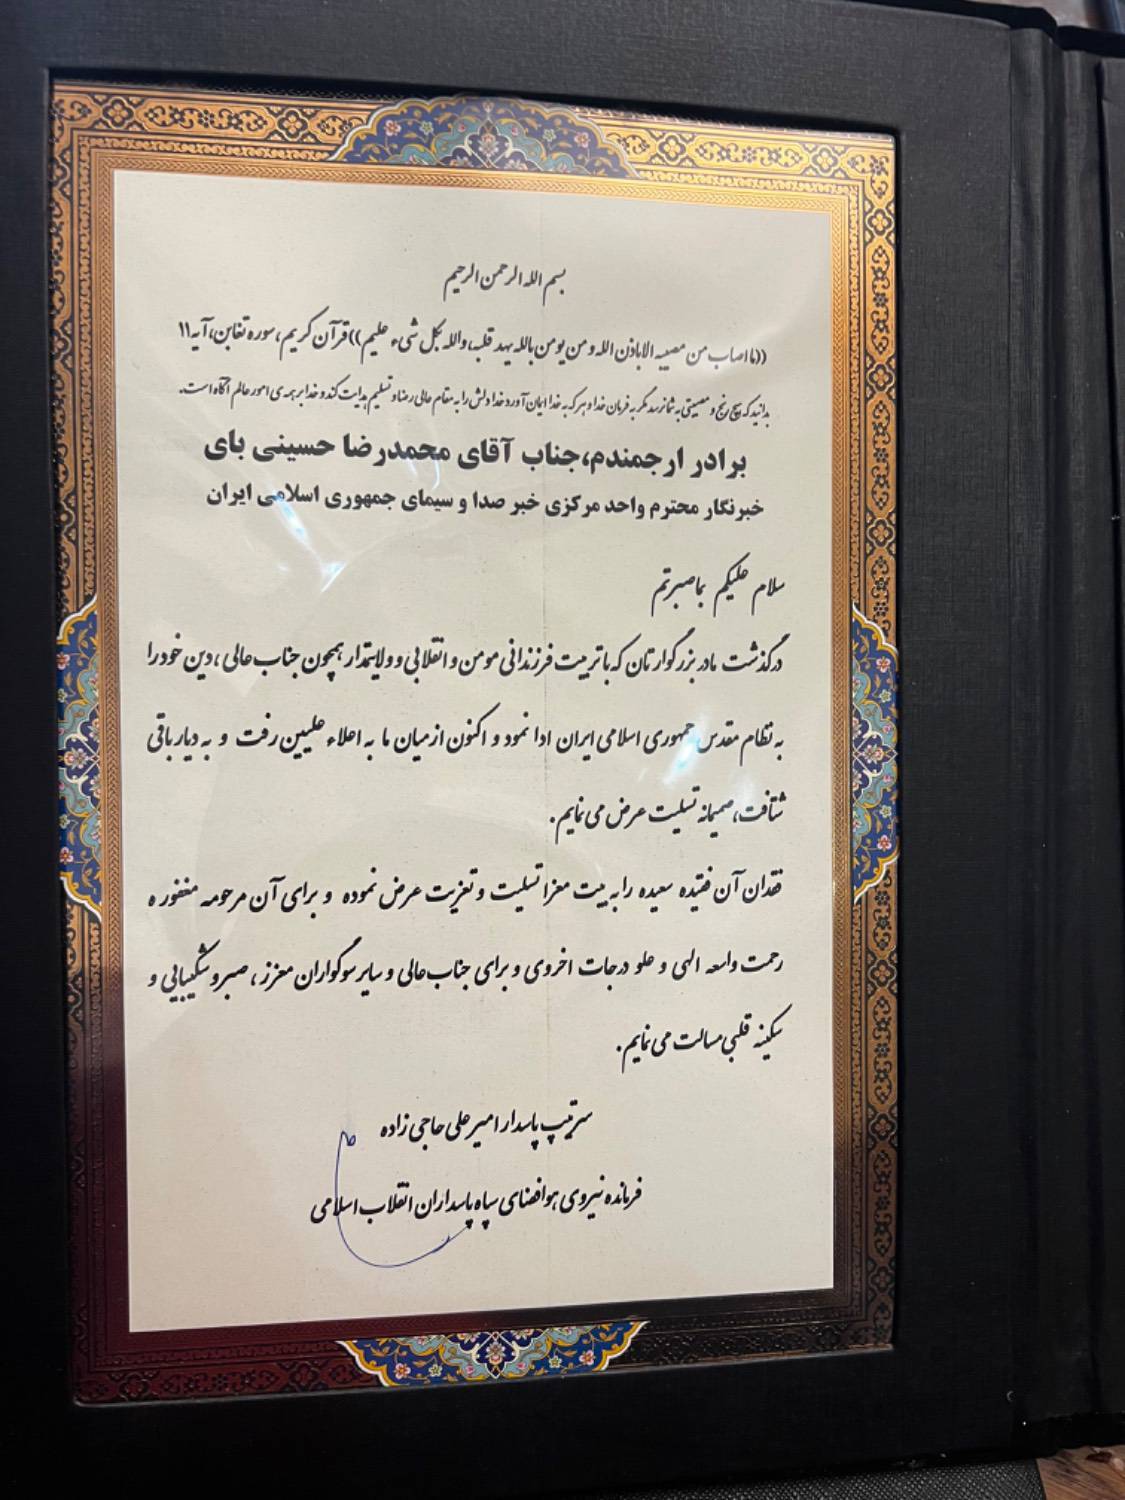 بسم الله الرحمن الرحیم
((ما اصاب من مصیبه الا باذن الله و من یومن بالله یهد قلبه، والله بکل شیء علیم))قرآن کریم، سوره تغابن، آیه ۱۱
بدانید که هیچ رنج و مصیبتی به شما نرسد مگر به فرمان خدا و هر که به خدا ایمان آورد خدا دلش را به مقام عالی رضا و تسلیم هدایت کند و خدا بر همه ی امور عالم آگاه است.
برادر ارجمندم،جناب آقای محمدرضا حسینی بای
خبرنگار محترم واحد مرکزی خبر صدا و سیمای جمهوری اسلامی ایران
سلام علیکم بماصبرتم
درگذشت مادر بزرگوارتان که با تربیت فرزندانی مومن و انقلابی و ولایتمدار همچون جناب عالی، دین خود را
به نظام مقدس جمهوری اسلامی ایران ادا نمود و اکنون از میان ما به اعلاء علیین رفت و به دیار باقی
شتافت، صمیمانه تسلیت عرض می نمایم.
فقدان آن فقیده سعیده را به بیت معزا تسلیت و تعزیت عرض نموده و برای آن مرحومه مغفوره
رحمت واسعه الهی و علو درجات اخروی و برای جناب عالی و سایر سوگواران معزز، صبر و شکیبایی و
سکینه قلبی مسالت می نمایم.
سرتیپ پاسدار امیرعلی حاجی زاده
فرمانده نیروی هوافضای سپاه پاسداران انقلاب اسلامی